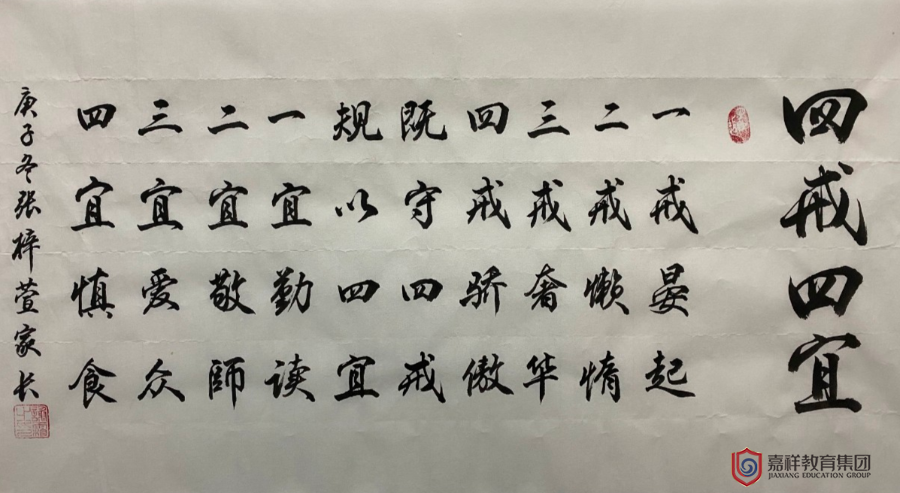 四戒四宜
一戒晏起
二戒懒惰
三戒奢华
四戒骄傲
既守四戒
规以四宜
一宜勤读
二宜敬師
三宜爱众
四宜慎食
庚子冬张梓萱家长
嘉祥教育集团
JIAXIANG EDUCATION GROUP